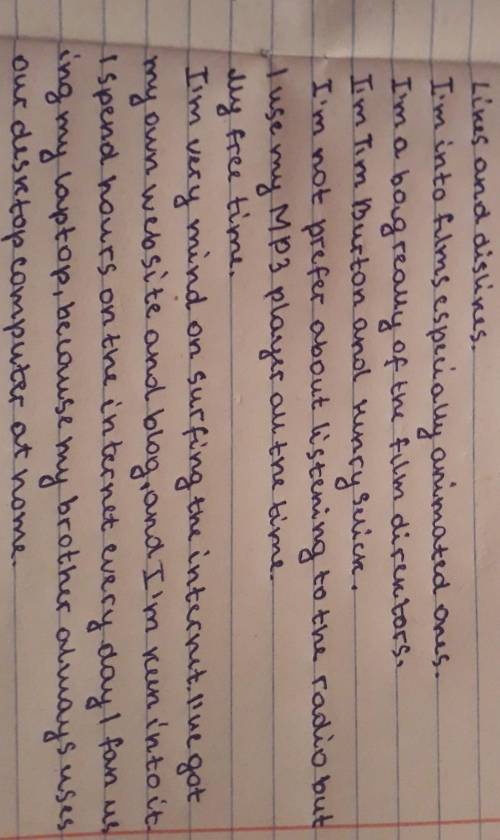 Likes and dislikes.
I'm into films especially animated ones.
I'm a bag really of the film direktors.
I'm Tim Burton and Henry Selick.
I'm not prefer about listening to the radio but
I use my MP3 player all the time.
My free time.
I'm very mind on surfing the internet. I've got
my own website and blog, and I'm keen into it.
I spend hours on the internet every day I fan us
ing my laptop, because my brother always uses
our desktop computer at home.